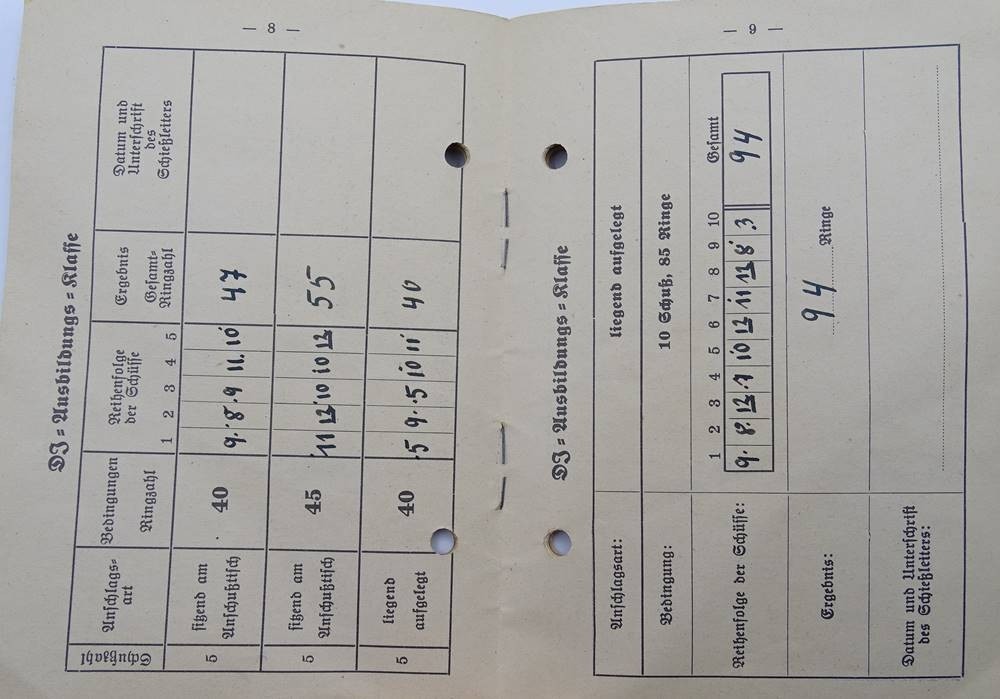 — 8 —
DJ=Ausbildungs=Klasse
Schußzahl Anschlags=art Bedingungen Ringzahl Reihenfolge der Schüsse 1 2 3 4 5 Ergebnis Gesamt=Ringzahl Datum und Unterschrift des Schießleiters
5 sitzend am Anschußtisch 40 9 8 9 11 10 47
5 sitzend am Anschußtisch 45 11 12 10 10 12 55
5 liegend aufgelegt 40 5 9 5 10 11 40
— 9 —
DJ=Ausbildungs=Klasse
Anschlagsart: liegend aufgelegt
Bedingung: 10 Schuß, 85 Ringe
1 2 3 4 5 6 7 8 9 10 Gesamt
Reihenfolge der Schüsse: 9 8 12 10 12 11 12 8 3 94
Ergebnis: 94 Ringe
Datum und Unterschrift
des Schießleiters: